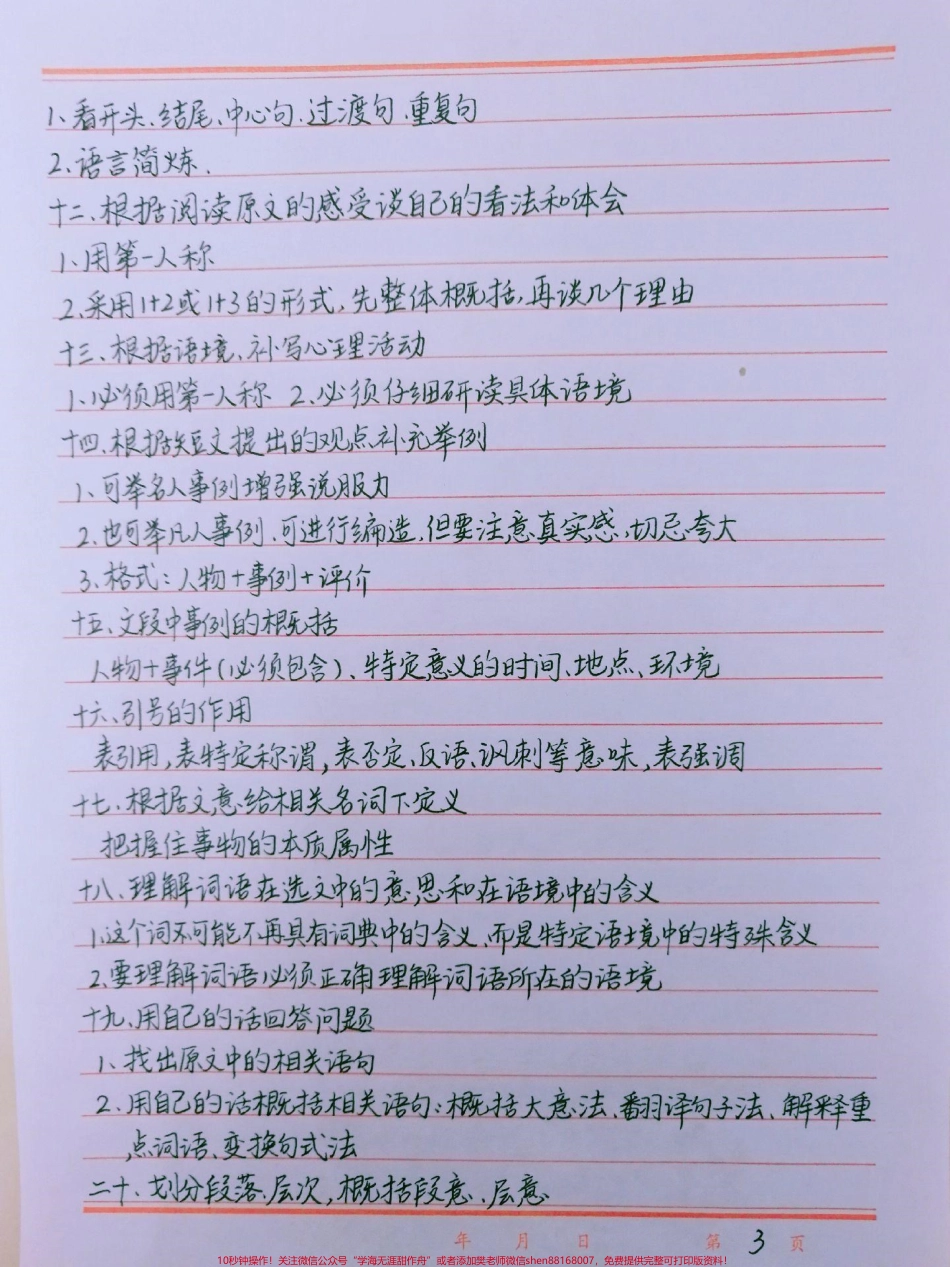 1、看开头、结尾、中心句、过渡句、重复句
2、语言简炼、
十二、根据阅读原文的感受谈自己的看法和体会
1、用第一人称
2、采用1+2或1+3的形式，先整体概括，再谈几个理由
十三、根据语境、补写心理活动
1、必须用第一人称 2、必须仔细研读具体语境
十四、根据短文提出的观点补充举例
1、可举名人事例增强说服力
2、也可举凡人事例、可进行编造，但要注意真实感，切忌夸大
3、格式：人物+事例+评价
十五、文段中事例的概括
人物+事件(必须包含)、特定意义的时间、地点、环境
十六、引号的作用
表引用，表特定称谓，表否定、反语、讽刺等意味，表强调
十七、根据文意给相关名词下定义
把握住事物的本质属性
十八、理解词语在选文中的意思和在语境中的含义
1、这个词不可能不再具有词典中的含义、而是特定语境中的特殊含义
2、要理解词语必须正确理解词语所在的语境
十九、用自己的话回答问题
1、找出原文中的相关语句
2、用自己的话概括相关语句：概括大意法、翻译句子法、解释重
点词语、变换句式法
二十、划分段落、层次，概括段意、层意
年 月 日 第 3 页
10秒钟操作！关注微信公众号“学海无涯甜作舟”或者添加樊老师微信shen88168007，免费提供完整可打印版资料！